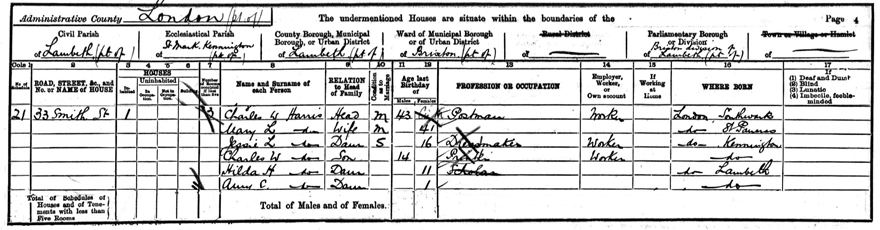 Administrative County London (pt of) The undermentioned Houses are situate within the boundaries of the Page 4
Civil Parish Ecclesiastical Parish County Borough, Municipal Borough, or Urban District Ward of Municipal Borough or of Urban District Rural District Parliamentary Borough or Division Town or Village or Hamlet
of Lambeth (pt of) of St Mark, Kennington (pt of) of Lambeth (pt of) of Brixton (pt of) of Brixton division of Lambeth (pt of)
Cols 1 2 3 4 5 6 7 8 9 10 11 12 13 14 15 16 17
ROAD, STREET, &c., and No. or NAME of HOUSE HOUSES Uninhabited In Occupation Not in Occupation Building Name and Surname of each Person RELATION to Head of Family Condition as to Marriage Age last Birthday of Males Females PROFESSION OR OCCUPATION Employer, Worker, or Own account If Working at Home WHERE BORN (1) Deaf and Dumb (2) Blind (3) Lunatic (4) Imbecile, feeble-minded
21 33 Smith St 1 3 Charles W Harris Head M 43 Postman Worker London, Southwark
Mary L do Wife M 41 do St Pancras
Jessie L do Daur S 16 Dressmaker Worker do Kennington
Charles W do Son 14 Worker do
Hilda H do Daur 11 Scholar do Lambeth
Amy C. do Daur 1 do
Total of Schedules of Houses and of Tenements with less than Five Rooms Total of Males and of Females.